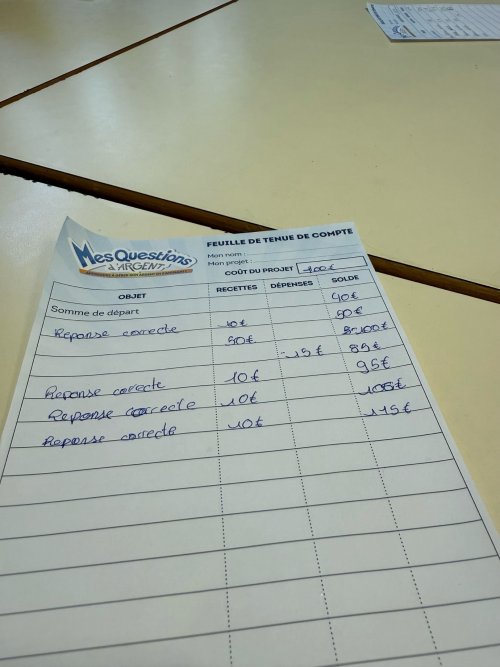 Mes Questions
d'ARGENT !
APPRENDRE À GÉRER SON ARGENT EN S'AMUSANT
FEUILLE DE TENUE DE COMPTE
Mon nom :
Mon projet :
COÛT DU PROJET
OBJET RECETTES DÉPENSES SOLDE
Somme de départ 40€
Reponse correcte 10€ 50€
50€ 100€
-15€ 85€
Reponse correcte 10€ 95€
Reponse correcte 10€ 105€
Reponse correcte 10€ 115€